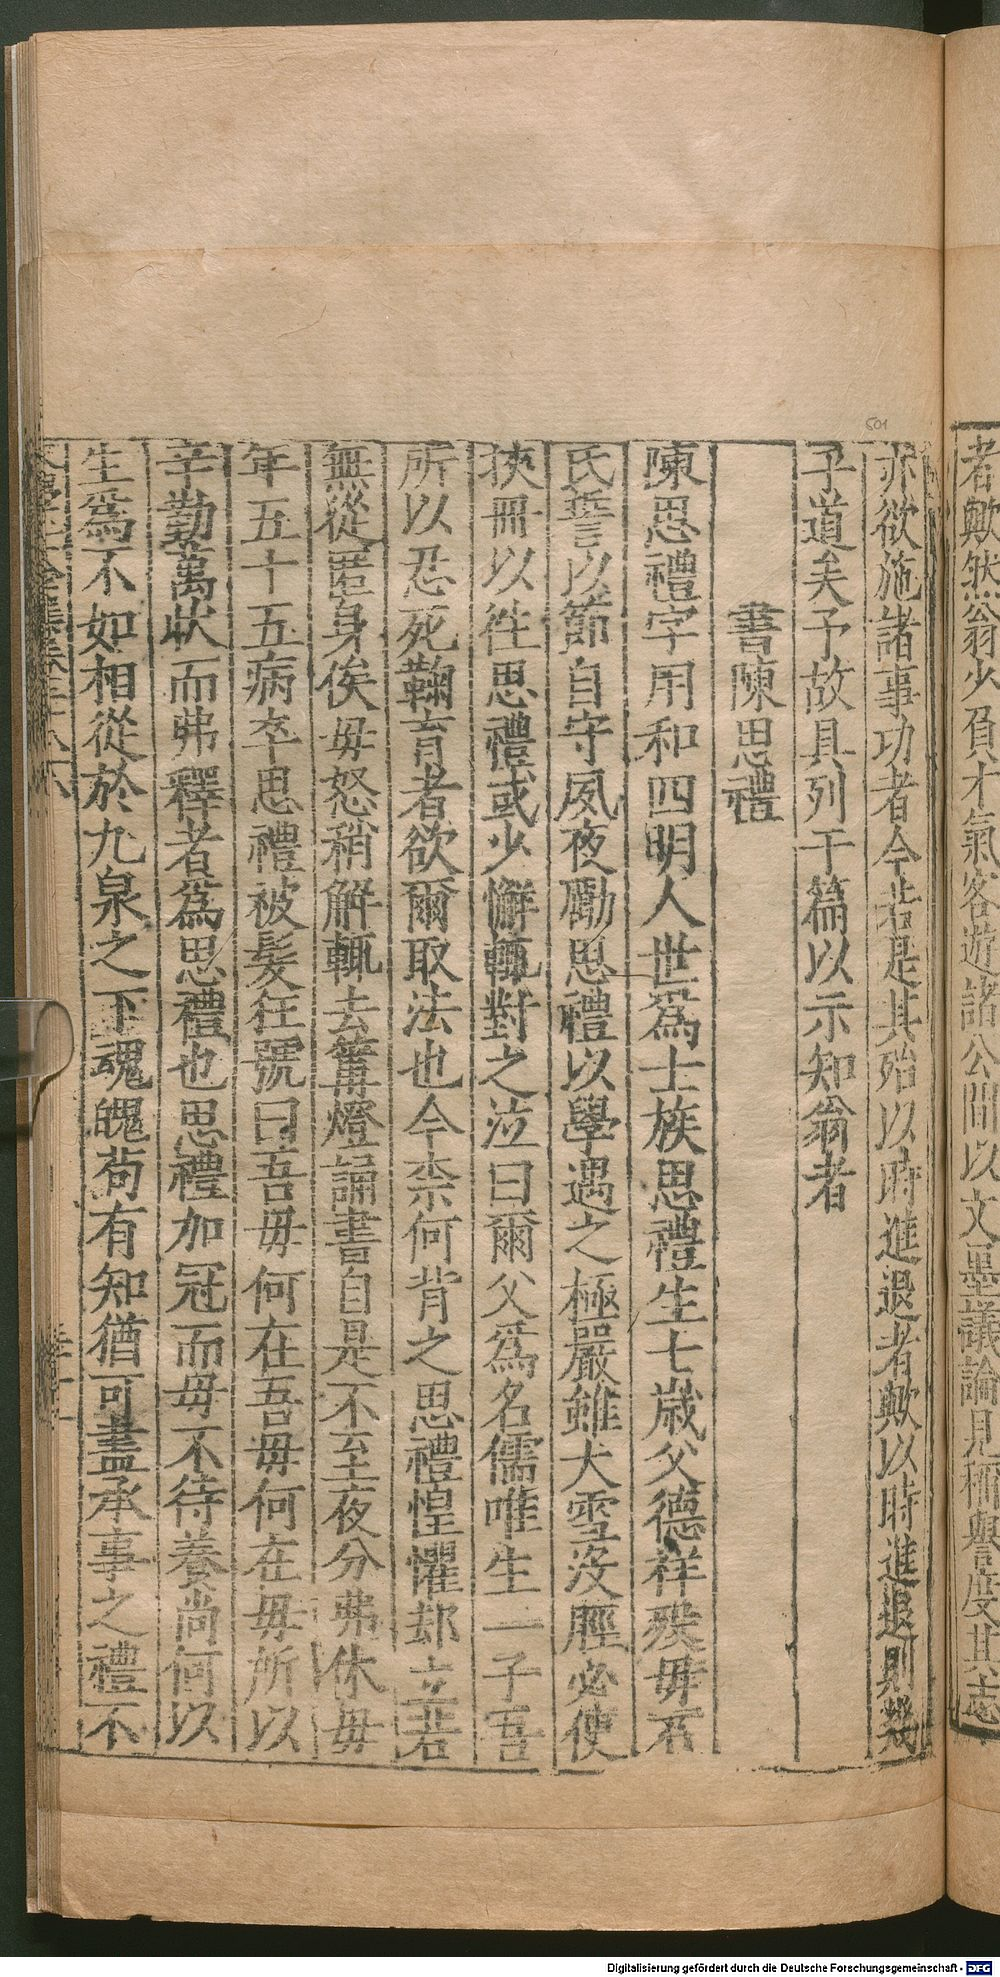 者歟然翁少負才氣客遊諸公間以文墨議論見稱與言度其志
亦欲施諸事功者今若是其殆以時進退者歟以時進退則幾
于道矣予故具列于篇以示知翁者
書陳思禮
陳思禮字用和四明人世爲士族思禮生七歲父德祥歿毋石
氏誓以節自守夙夜勵思禮以學遇之極嚴雖大雪沒脛必使
挾冊以徃思禮或少懈輒對之泣曰爾父爲名儒唯生一子吾
所以忍死鞠育者欲爾取法也今柰何背之思禮惶懼却立若
無從匿身俟毋怒稍解輒去篝燈誦書自是不至夜分弗休毋
年五十五病卒思禮被髮狂號曰吾毋何在吾毋何在毋所以
辛勤萬狀而弗釋者爲思禮也思禮加冠而毋不待養尚何以
生爲不如相從於九泉之下魂魄苟有知猶可盡承事之禮不
501
Digitalisierung gefördert durch die Deutsche Forschungsgemeinschaft - DFG